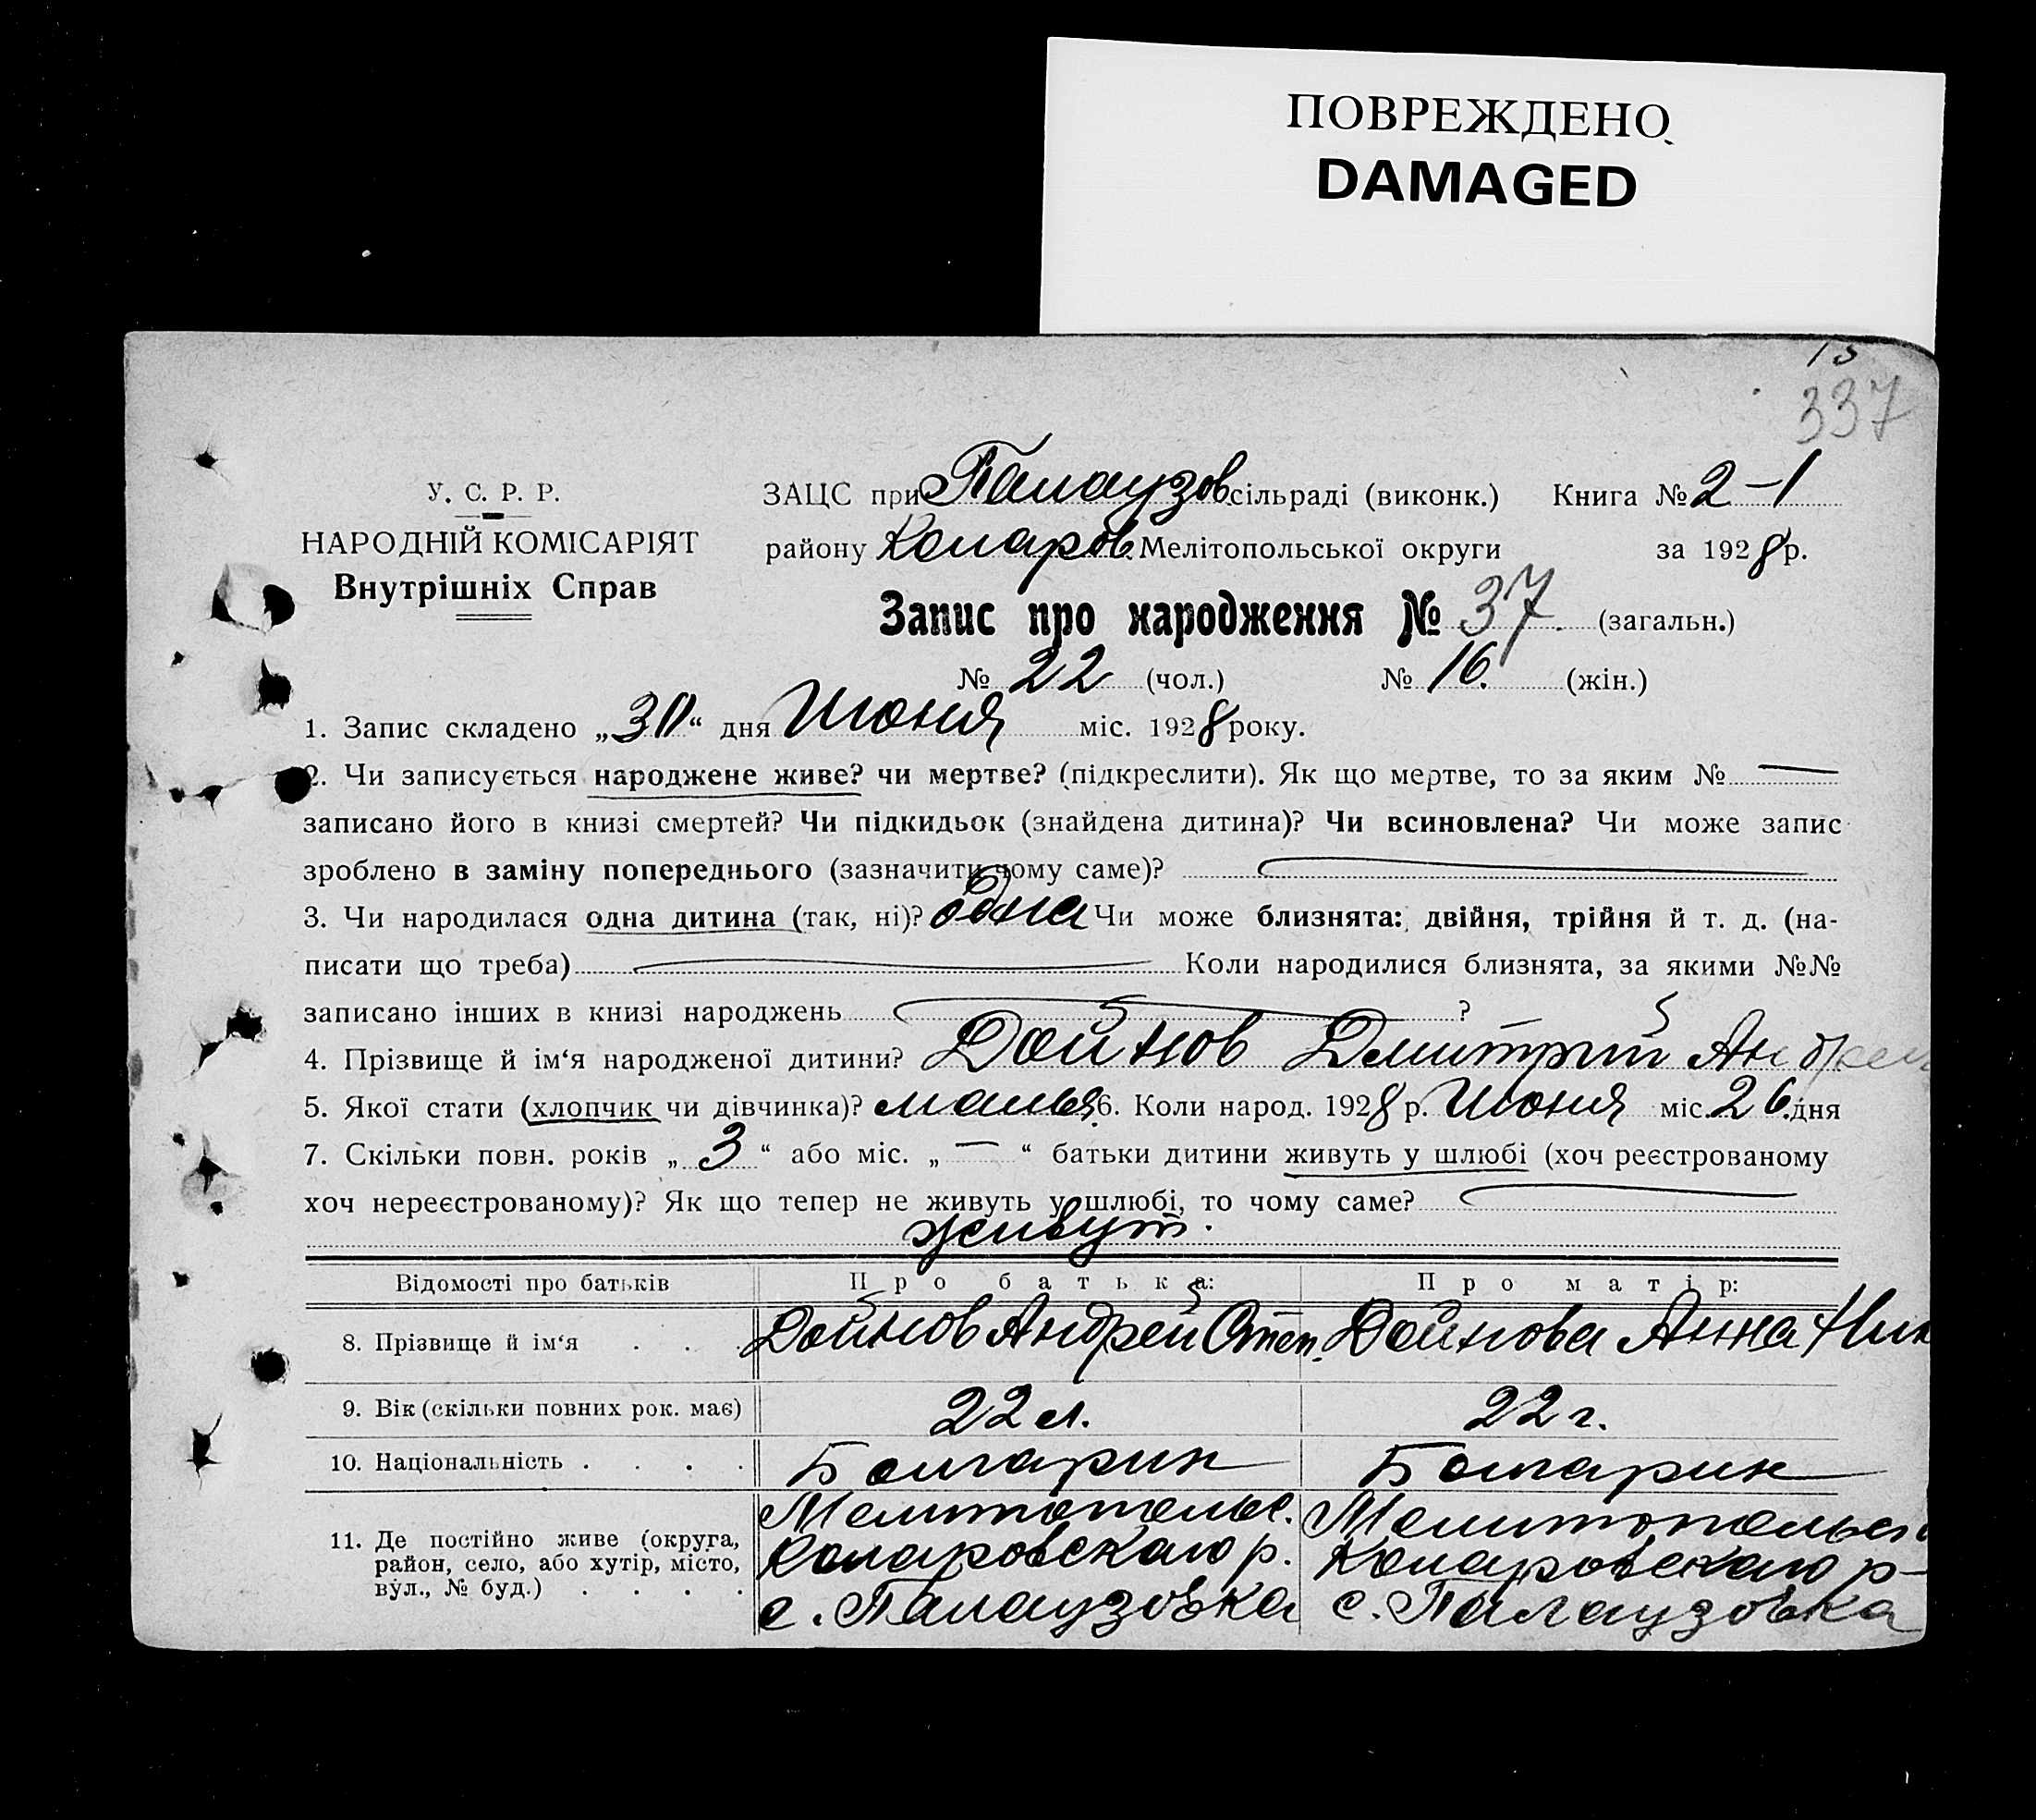 ПОВРЕЖДЕНО
DAMAGED
337
У. С. Р. Р.
НАРОДНІЙ КОМІСАРІЯТ
Внутрішніх Справ
ЗАЦС при Палаузов сільраді (виконк.) Книга № 2-1
району Коларов. Мелітопольської округи за 1928 р.
Запис про народження № 37. (загальн.)
№ 22 (чол.) № 16. (жін.)
1. Запис складено „30“ дня Июня міс. 1928 року.
2. Чи записується народжене живе? чи мертве? (підкреслити). Як що мертве, то за яким № —
записано його в книзі смертей? Чи підкидьок (знайдена дитина)? Чи всиновлена? Чи може запис
зроблено в заміну попереднього (зазначити чому саме)?
3. Чи народилася одна дитина (так, ні)? одна Чи може близнята: двійня, трійня й т. д. (на-
писати що треба) Коли народилися близнята, за якими №№
записано інших в книзі народжень ?
4. Прізвище й ім‘я народженої дитини? Дойнов Дмитрий Андреи
5. Якої стати (хлопчик чи дівчинка)? 6. Коли народ. 1928 р. Июня міс. 26. дня
7. Скільки повн. років „3“ або міс. „—“ батьки дитини живуть у шлюбі (хоч реєстрованому
хоч нереєстрованому)? Як що тепер не живуть у шлюбі, то чому саме?
живут.
Відомості про батьків Про батька: Про матір:
8. Прізвище й ім‘я . . . Дойнов Андрей Степ. Дойнова Анна Ник
9. Вік (скільки повних рок. має) 22 л. 22 г.
10. Національність . . . . Болгарин Болгарин
11. Де постійно живе (округа, район, село, або хутір, місто, вул., № буд.) . . . .
Мелитопольс. Мелитопольск
Коларовскаго р. Коларовскаго р-
с. Палаузовка с. Палаузовка